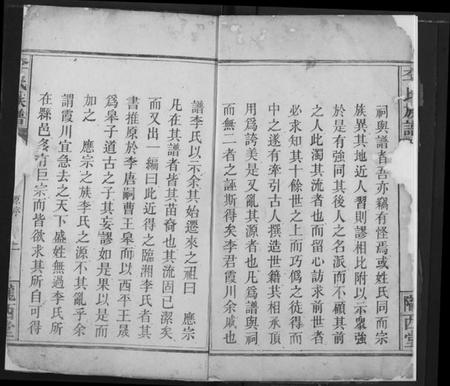 祠與譜者吾亦竊有怪焉或姓同而宗
族異其地近人習則謬相比附以示衆強
於是有強同其後人之名派而不顧其前
之人此濁其流者也而留心訪求前世者
必求知其十餘世之上而巧僞之徒得而
中之遂有牽引古人撰造世籍其相承頂
用爲誇美是又亂其源者也凡爲譜與祠
而無二者之誣斯得矣李君霞川余戚也
譜李氏以示余其始遷來之祖曰 應宗
凡在其譜者皆其苗裔也其流固已潔矣
而又出一編曰此近得之臨湘李氏者其
書推原於李唐嗣曹王臯而以西平王晟
爲臯子道古之子其妄謬如是果以是而
加之 應宗之族李氏之源不其亂乎余
謂霞川宜急去之天下盛姓無過李氏所
在縣邑多有巨宗而皆欲求其所自可得
李氏族譜
隴西堂
李氏族譜
隴西堂